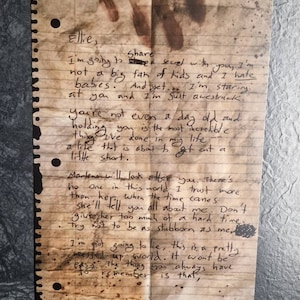 Ellie,
share
I'm going to a secret with you, I'm
not a big fan of kids and I hate
babies. And yet, I'm staring
at you and I'm just awestruck.
You're not even a day old and
holding you is the most incredible
thing I've done in my life -
a life that is about to get cut a
little short.
Marlene will look after you. There's
no one in this world I trust more
than her. When the time comes
she'll tell you all about me. Don't
give her too much of a hard time.
Try not to be as stubborn as me.
I'm not going to lie, this is a pretty
messed up world. It won't be
easy. The thing you always have
to remember is that,